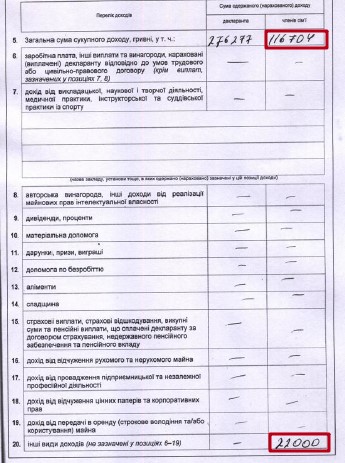 Перелік доходів
Сума одержаного (нарахованого) доходу
декларанта
члена сім'ї
5. Загальна сума сукупного доходу, гривні, у т. ч.:
276277
116704
6. заробітна плата, інші виплати та винагороди, нараховані
(виплачені) декларанту відповідно до умов трудового
або цивільно-правового договору (крім виплат,
зазначених у позиціях 7, 8)
7. дохід від викладацької, наукової і творчої діяльності,
медичної практики, інструкторської та суддівської
практики із спорту
(назва закладу, установи тощо, в яких одержано (нараховано) зазначені у цій позиції доходи)
8. авторська винагорода, інші доходи від реалізації
майнових прав інтелектуальної власності
9. дивіденди, проценти
10. матеріальна допомога
11. дарунки, призи, виграші
12. допомога по безробіттю
13. аліменти
14. спадщина
15. страхові виплати, страхові відшкодування, викупні
суми та пенсійні виплати, що сплачені декларанту за
договором страхування, недержавного пенсійного
забезпечення та пенсійного вкладу
16. дохід від відчуження рухомого та нерухомого майна
17. дохід від провадження підприємницької та незалежної
професійної діяльності
18. дохід від відчуження цінних паперів та корпоративних
прав
19. дохід від передачі в оренду (строкове володіння та/або
користування) майна
20. інші види доходів (не зазначені у позиціях 6–19)
22000